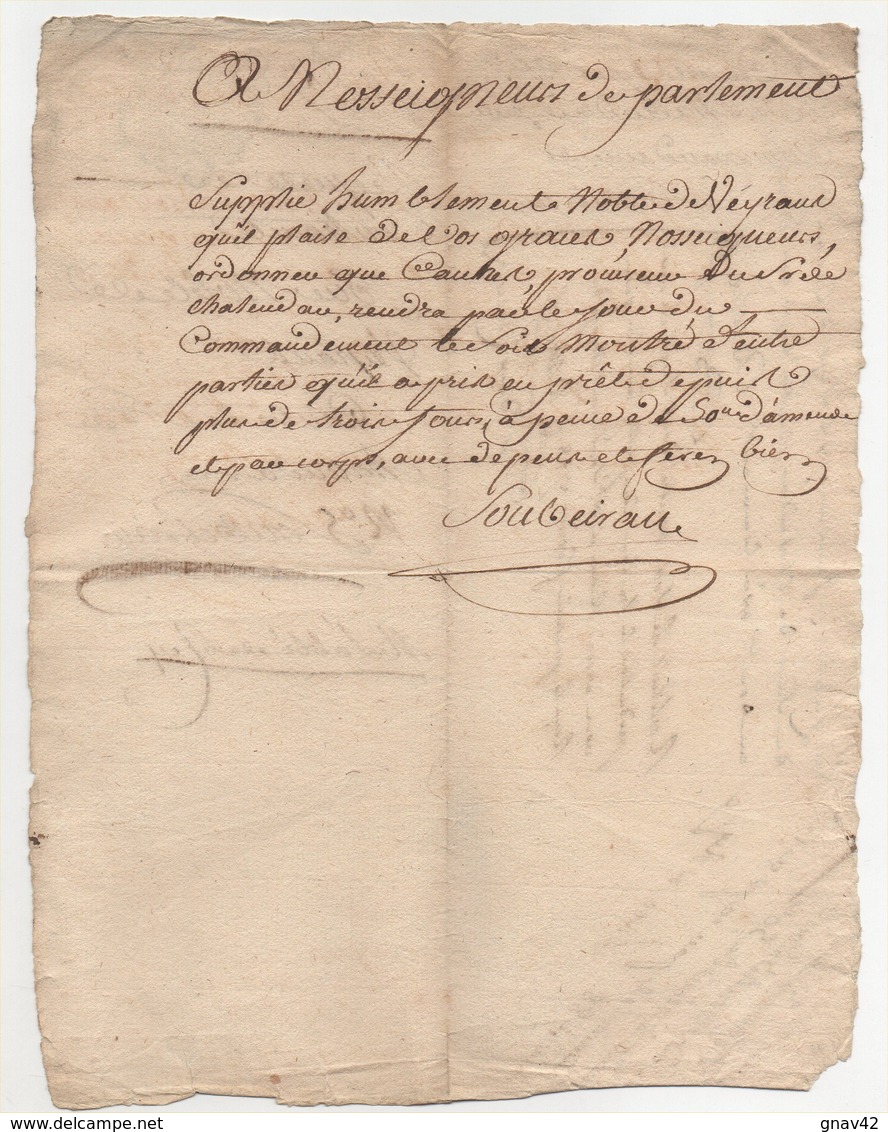 A Nosseigneurs de parlement
Supplie humblement Noble de Veyrans
qu'il plaise de Vos graces Nosseigneurs,
ordonner que procureur du Sr de
rendra par le Jour du
Commandement le Soit Montré d'entre
parties qu'il a pris en prêt depuis
plus de trois Jours, à peine de 50tt d'amende
et par corps, avec depens et ferez bien
Soubeiran
gnav42